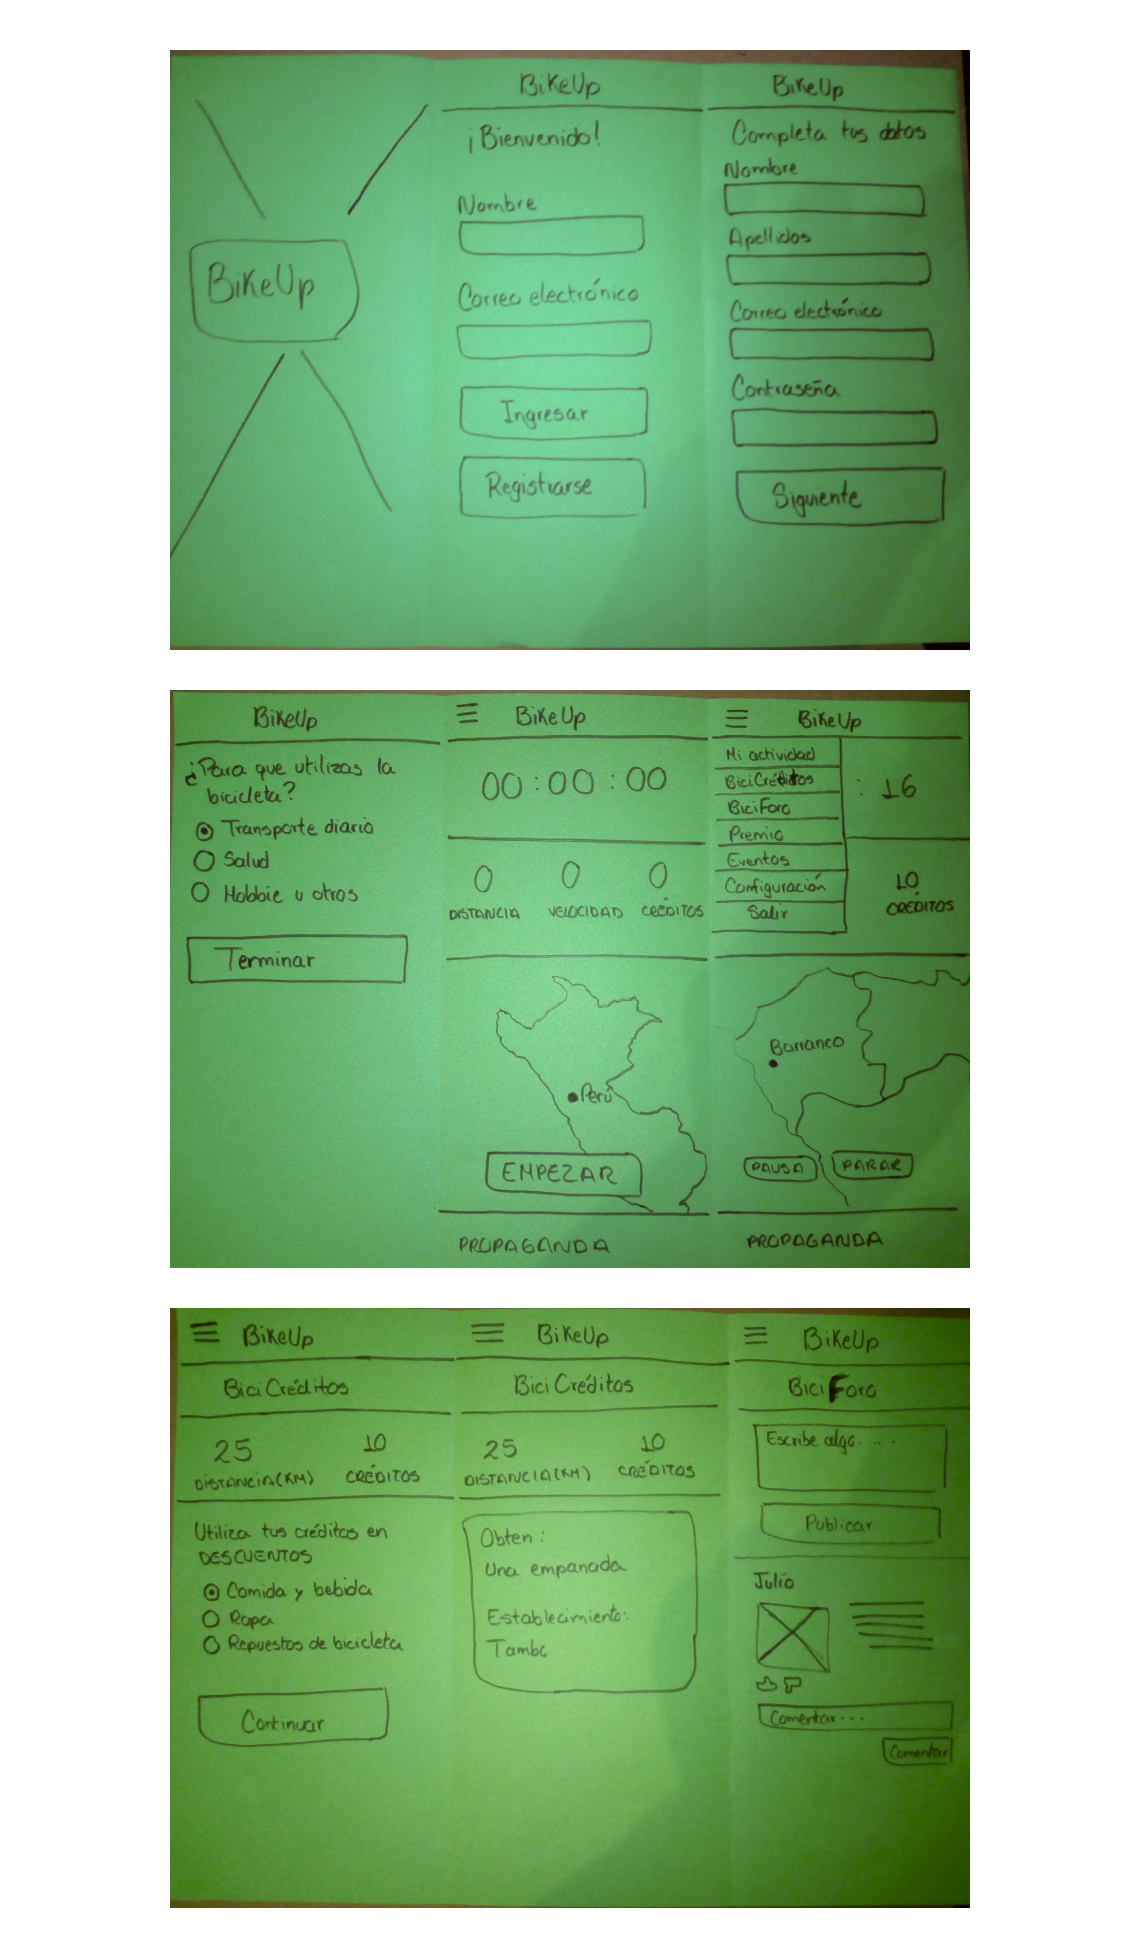 BikeUp
BikeUp
¡Bienvenido!
Nombre
Correo electrónico
Ingresar
Registrarse
BikeUp
Completa tus datos
Nombre
Apellidos
Correo electrónico
Contraseña
Siguiente
BikeUp
¿Para que utilizas la
bicicleta?
Transporte diario
Salud
Hobbie u otros
Terminar
BikeUp
00:00:00
0 0 0
DISTANCIA VELOCIDAD CRÉDITOS
Perú
EMPEZAR
PROPAGANDA
BikeUp
Mi actividad
BiciCréditos
BiciForo
Premio
Eventos
Configuración
Salir
: 16
10
CRÉDITOS
Barranco
PAUSA PARAR
PROPAGANDA
BikeUp
BiciCréditos
25 10
DISTANCIA(KM) CRÉDITOS
Utiliza tus créditos en
DESCUENTOS
Comida y bebida
Ropa
Repuestos de bicicleta
Continuar
BikeUp
BiciCréditos
25 10
DISTANCIA(KM) CRÉDITOS
Obten:
Una empanada
Establecimiento:
Tambo
BikeUp
BiciForo
Escribe algo....
Publicar
Julio
Comentar...
Comentar